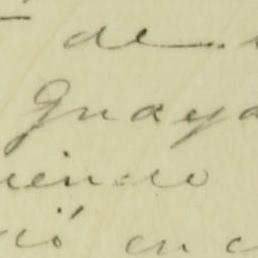 de
Guaya
iendo
ió en c